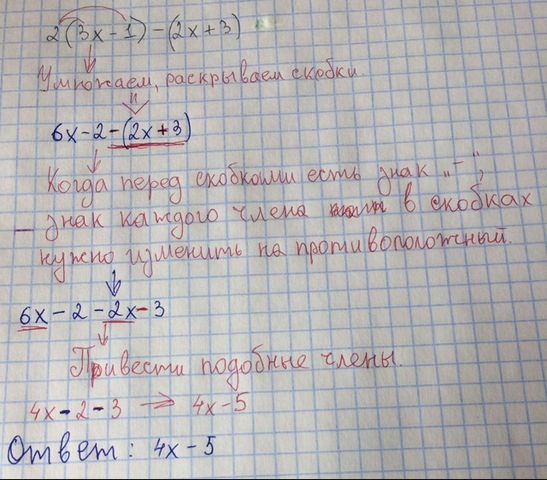 2(3x-1)-(2x+3)
Умножаем, раскрываем скобки.
6x-2-(2x+3)
Когда перед скобками есть знак „-“,
знак каждого члена в скобках
нужно изменить на противоположный.
6x-2-2x-3
Привести подобные члены.
4x-2-3 ⇒ 4x-5
Ответ: 4x-5